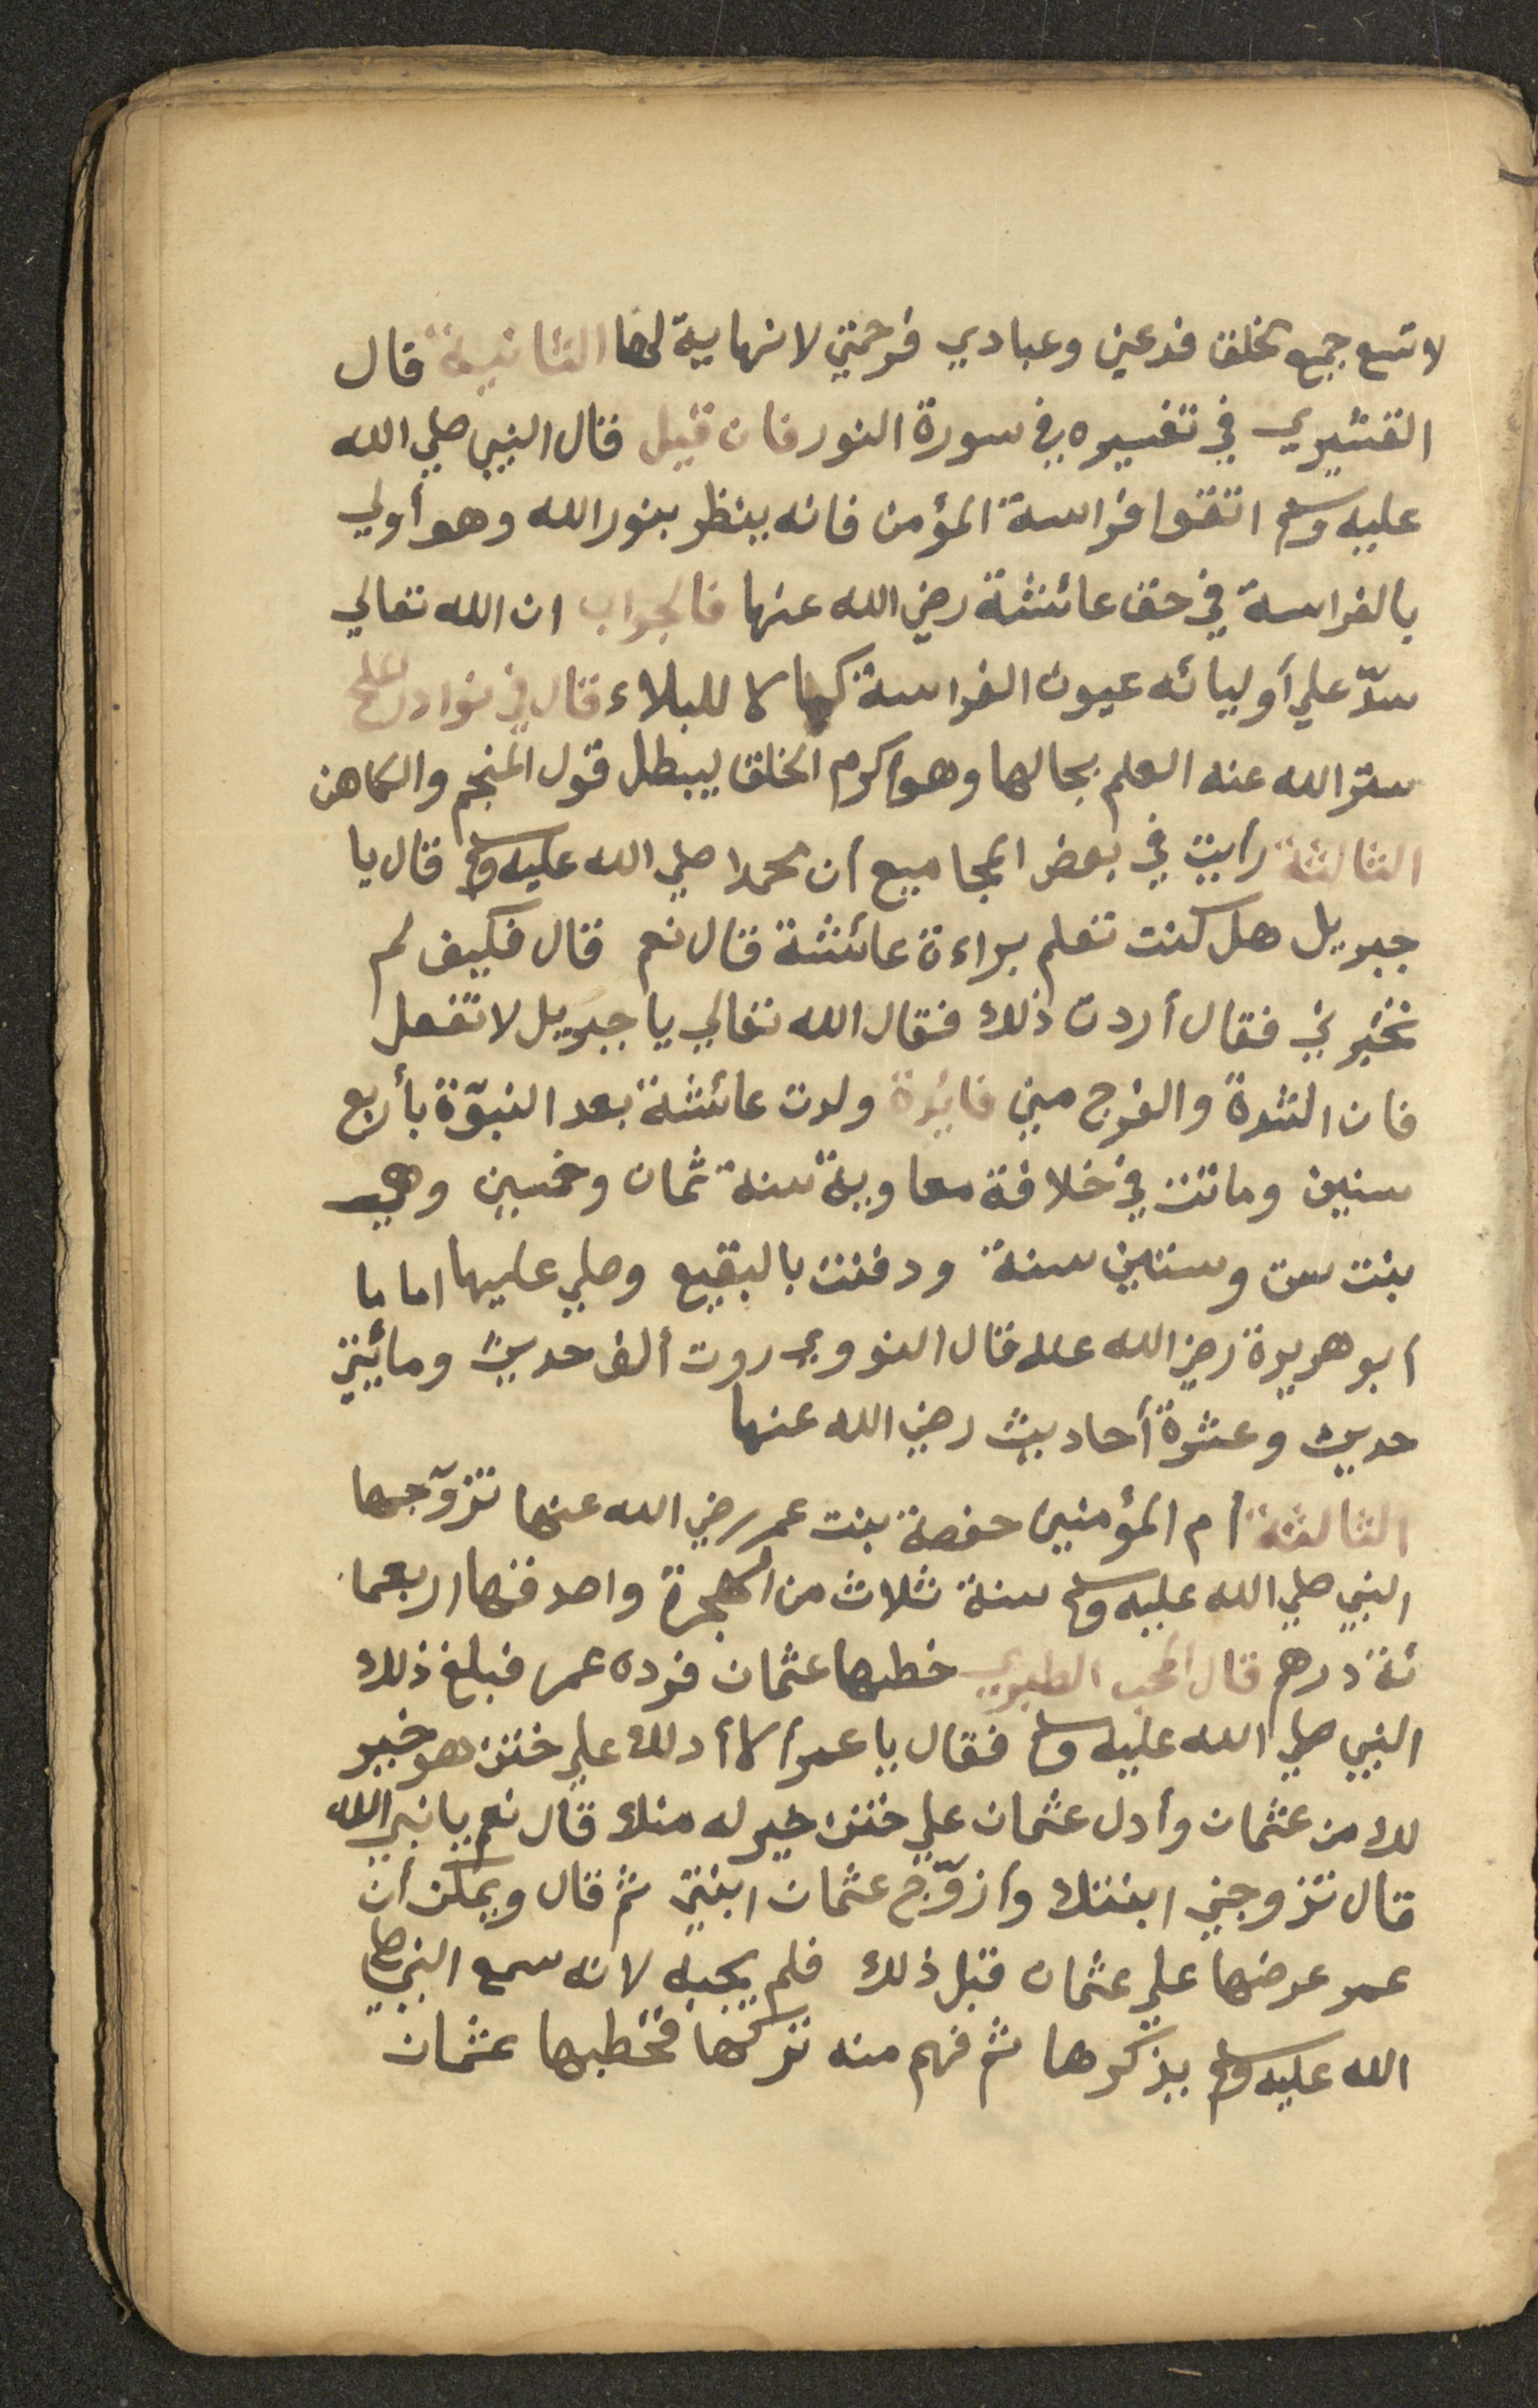 لا تسع جميع الخلق فدعني وعبادي فرحمتي لا نهاية لها الثانية قال
القشيري في تفسيره في سورة النور فان قيل قال النبي صلي الله
عليه وسلم اتقوا فراسة المؤمن فانه ينظر بنور الله وهو أولي
بالفراسة في حق عائشة رضي الله عنها فالجواب ان الله تعالي
سدّ علي أوليائه عيون الفراسة كمالا للبلاء قال في نوادر الملح
ستر الله عنه العلم بحالها وهو اكرم الخلق ليبطل قول المنجم والكاهن
الثالثة رأيت في بعض المجاميع أن محمدا صلي الله عليه وسلم قال يا
جبريل هل كنت تعلم براءة عائشة قال نعم قال فكيف لم
تخبرني فقال أردت ذلك فقال الله تعالي يا جبريل لا تفعل
فان الشدة والفرج مني فايدة ولدت عائشة بعد النبوّة بأربع
سنين وماتت في خلافة معاوية سنة ثمان وخمسين وهي
بنت ست وستين سنة ودفنت بالبقيع وصلي عليها اماما
أبو هريرة رضي الله عنه قال النووي روت ألف حديث ومائتي
حديث وعشرة أحاديث رضي الله عنها
الثالثة أم المؤمنين حفصة بنت عمر رضي الله عنها تزوّجها
النبي صلي الله عليه وسلم سنة ثلاث من الهجرة واصدقها اربعما
ئة درهم قال المحب الطبري خطبها عثمان فرده عمر فبلغ ذلك
النبي صلي الله عليه وسلم فقال يا عمر ألا أدلك علي ختن هو خير
لك من عثمان وأدل عثمان علي ختن خير له منك قال نعم يا نبي الله
قال تزوجني ابنتك وأزوّج عثمان ابنتي ثم قال ويمكن أن
عمر عرضها علي عثمان قبل ذلك فلم يجبه لانه سمع النبي صلي
الله عليه وسلم يذكرها ثم فهم منه تركها فخطبها عثمان